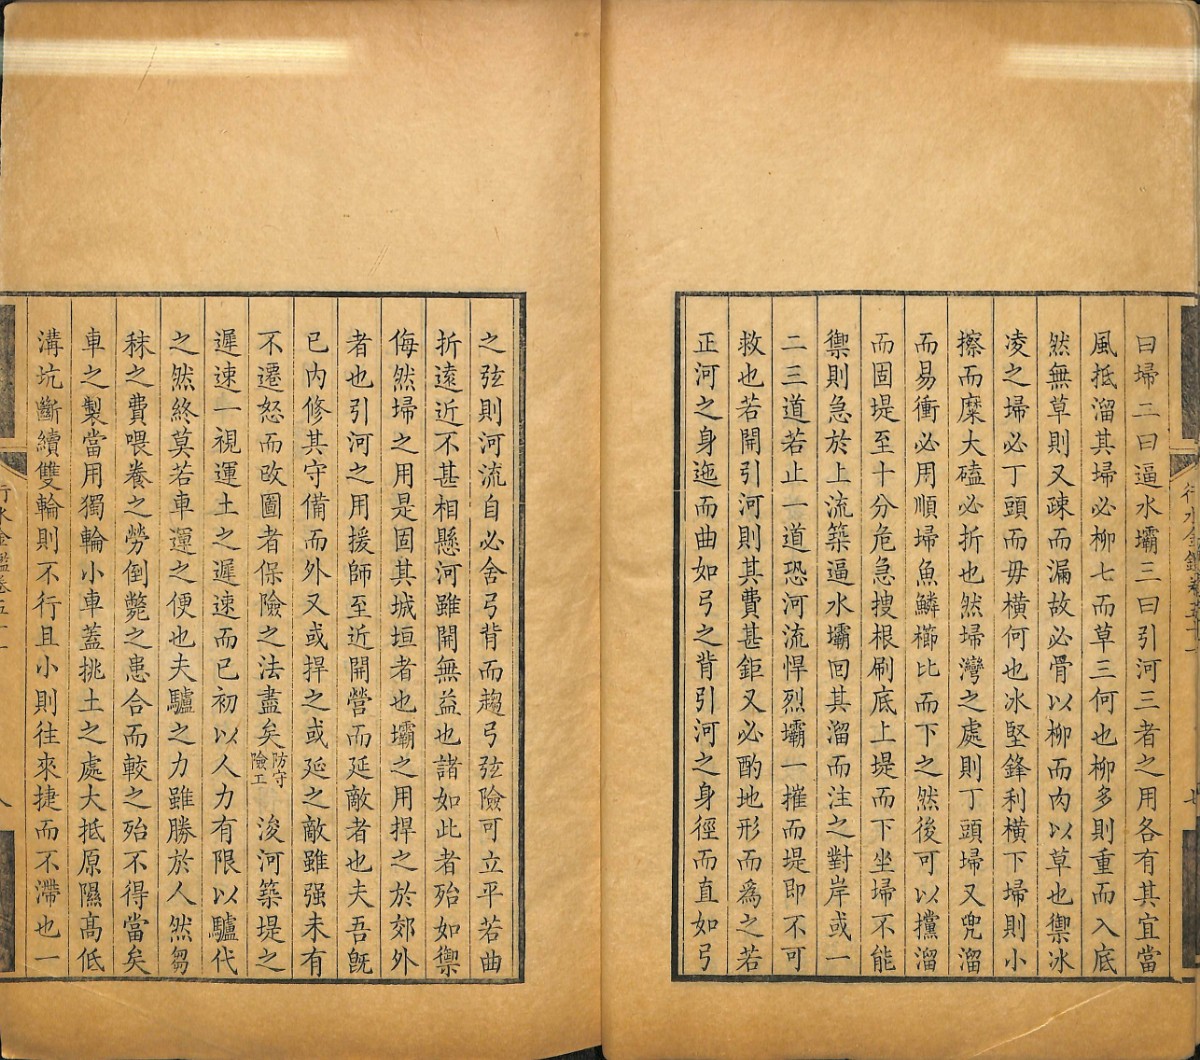 曰埽二曰逼水壩三曰引河三者之用各有其宜當
風抵溜其埽必柳七而草三何也柳多則重而入底
然無草則又疎而漏故必骨以柳而肉以草也禦冰
凌之埽必丁頭而毋橫何也冰堅鋒利橫下埽則小
擦而糜大磕必折也然埽灣之處則丁頭埽又兜溜
而易衝必用順埽魚鱗櫛比而下之然後可以攩溜
而固堤至十分危急搜根刷底上堤而下坐埽不能
禦則急於上流築逼水壩回其溜而注之對岸或一
二三道若止一道恐河流悍烈壩一摧而堤即不可
救也若開引河則其費甚鉅又必酌地形而為之若
正河之身迤而曲如弓之背引河之身徑而直如弓
之弦則河流自必舍弓背而趨弓弦險可立平若曲
折遠近不甚相懸河雖開無益也諸如此者殆如禦
侮然埽之用是固其城垣者也壩之用捍之於郊外
者也引河之用援師至近開營而延敵者也夫吾旣
已內修其守備而外又或捍之或延之敵雖强未有
不遷怒而改圖者保險之法盡矣防守險工 浚河築堤之
遲速一視運土之遲速而已初以人力有限以驢代
之然終莫若車運之便也夫驢之力雖勝於人然芻
秣之費喂養之勞倒斃之患合而較之殆不得當矣
車之製當用獨輪小車蓋挑土之處大抵原隰高低
溝坑斷續雙輪則不行且小則往來捷而不滯也一
行水金鑑卷五十
八